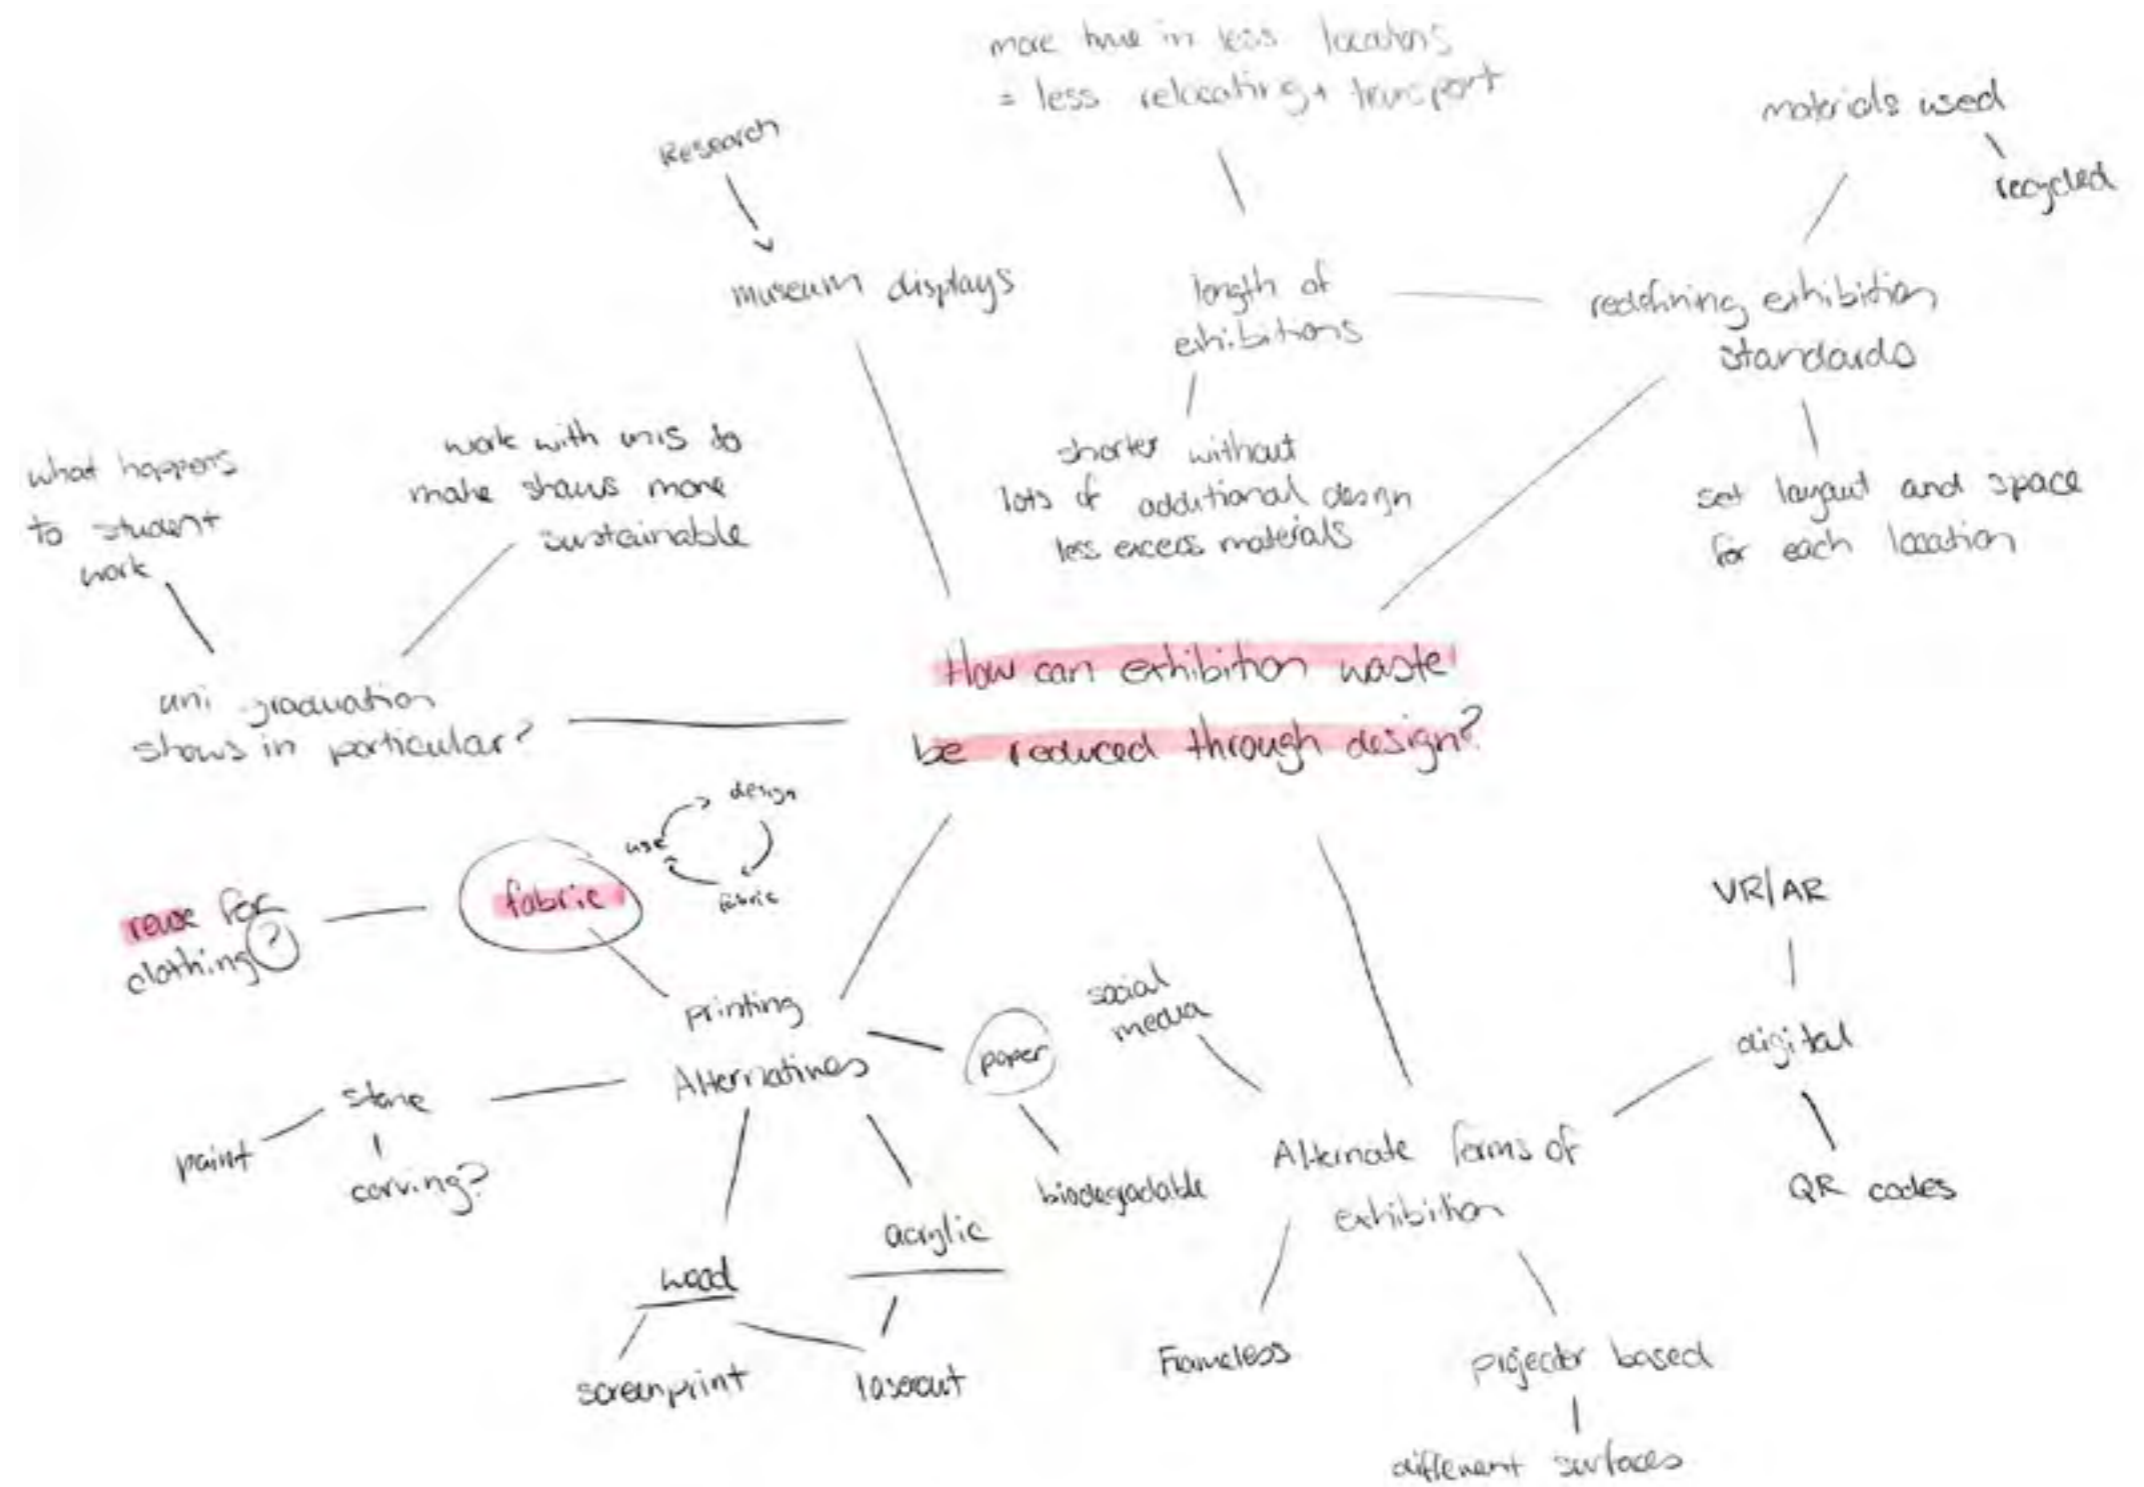 more time in less locations
= less relocating + transport
materials used
recycled
Research
museum displays
length of
exhibitions
redefining exhibition
standards
shorter without
lots of additional design
less excess materials
set layout and space
for each location
what happens
to student
work
work with unis to
make shows more
sustainable
uni graduation
shows in particular?
How can exhibition waste
be reduced through design?
design
use
fabric
fabric
reuse for
clothing?
printing
Alternatives
paper
biodegradable
stone
paint
carving?
wood
acrylic
screenprint
lasercut
social
media
VR/AR
digital
QR codes
Alternate forms of
exhibition
Frameless
projector based
different surfaces